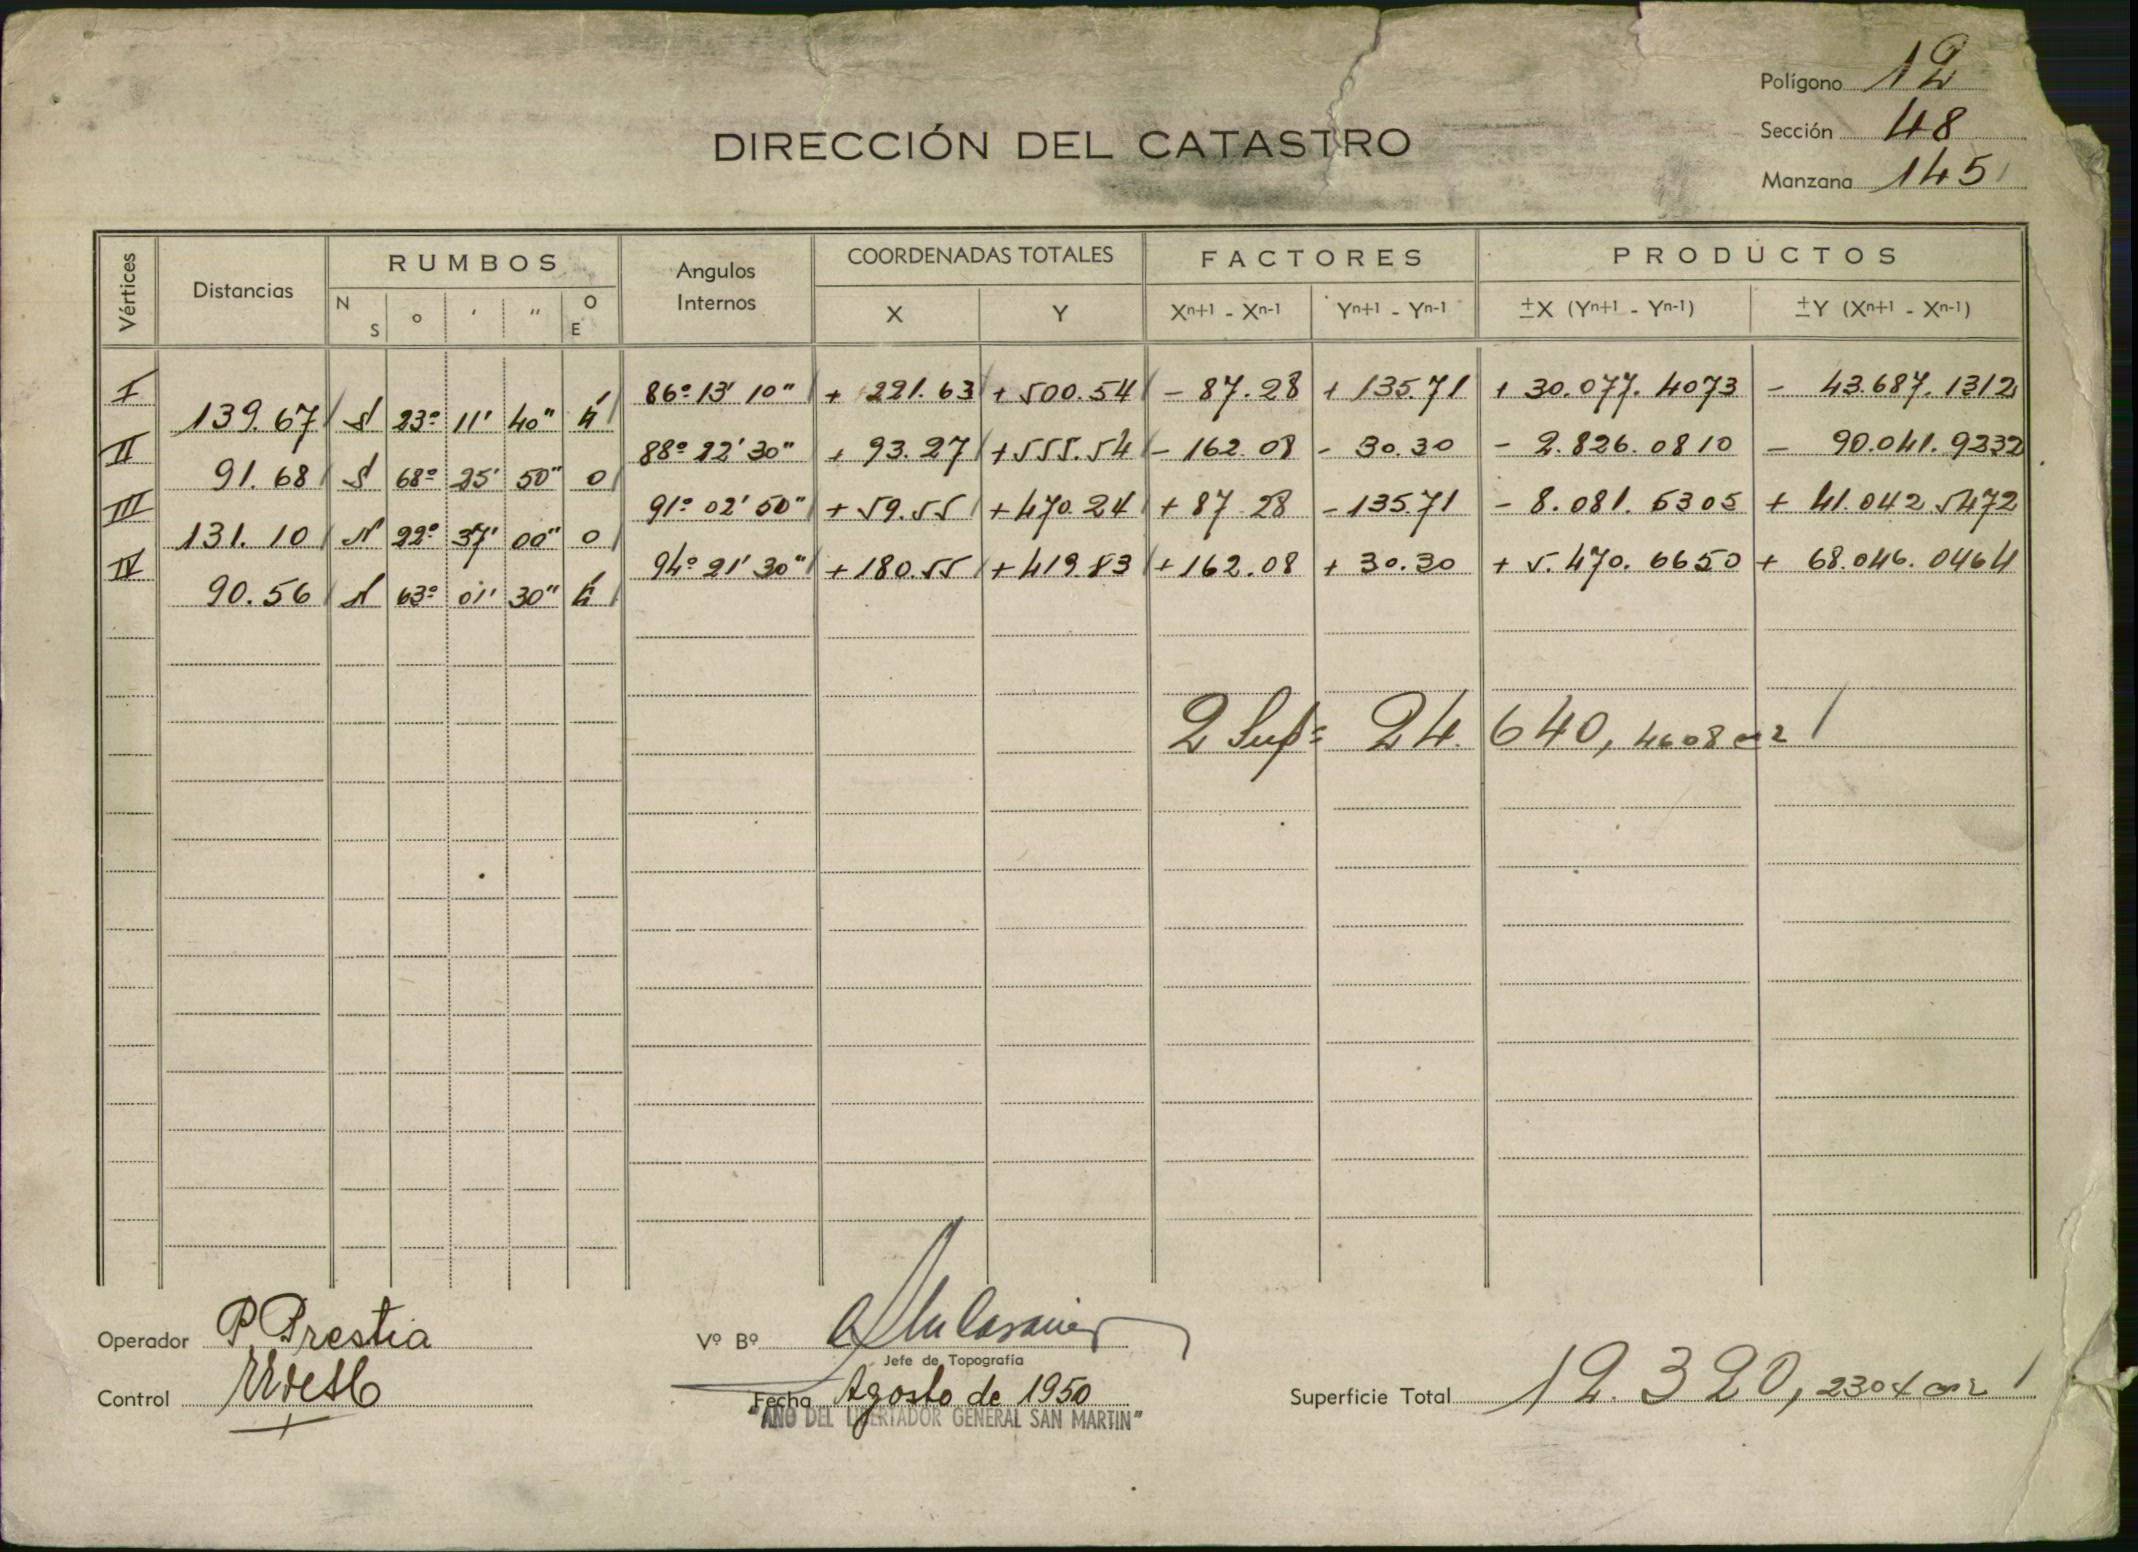 Polígono 12
Sección 48
Manzana 145
DIRECCIÓN DEL CATASTRO
Vértices Distancias RUMBOS Angulos Internos COORDENADAS TOTALES FACTORES PRODUCTOS
N S ° ' " O E X Y Xn+1 - Xn-1 Yn+1 - Yn-1 ±X (Yn+1 - Yn-1) ±Y (Xn+1 - Xn-1)
I 86° 13' 10" + 221.63 + 500.54 - 87.28 + 135.71 + 30.077.4073 - 43.687.1312
139.67 S 23° 11' 40" E
II 88° 22' 30" + 93.27 + 555.54 - 162.08 - 30.30 - 2.826.0810 - 90.041.9232
91.68 S 68° 25' 50" O
III 91° 02' 50" + 59.55 + 470.24 + 87.28 - 135.71 - 8.081.5305 + 41.042.5472
131.10 N 22° 37' 00" O
IV 94° 21' 30" + 180.55 + 419.83 + 162.08 + 30.30 + 5.470.6650 + 68.046.0464
90.56 N 63° 01' 30" E
2 Sup= 24.640,4608 m2
Operador P Prestia
Control
Vº Bº
Jefe de Topografía
Fecha Agosto de 1950
"AÑO DEL LIBERTADOR GENERAL SAN MARTIN"
Superficie Total 12.320,2304 m2